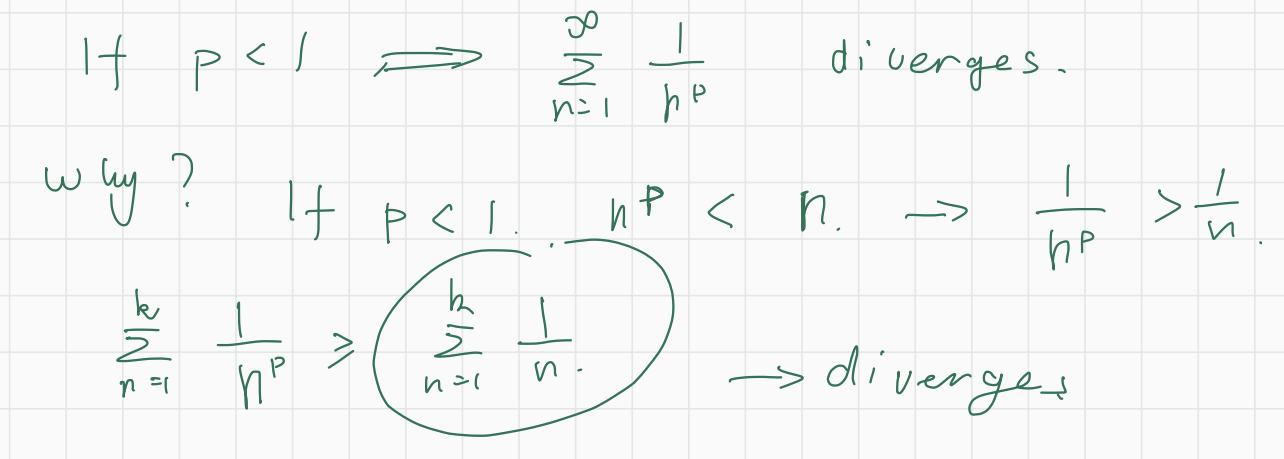 If p < 1 ⟹ ∑_{n=1}^{∞} 1/n^p diverges.
why? If p < 1. n^p < n. → 1/n^p > 1/n.
∑_{n=1}^{k} 1/n^p ≥ ∑_{n=1}^{k} 1/n. → diverges